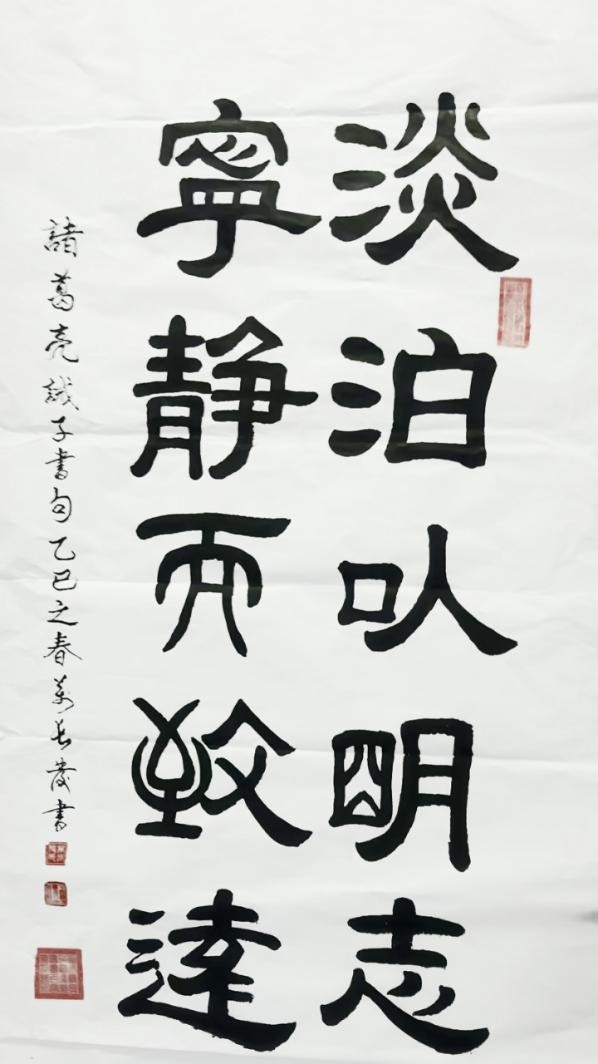 淡泊以明志
寧静而致達
諸葛亮誡子書句乙巳之春萬長發書